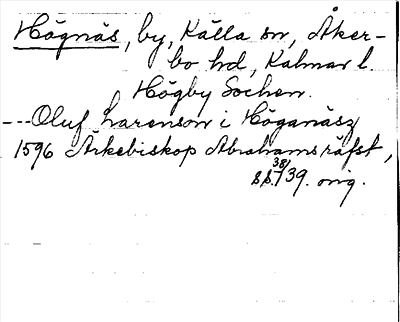 Högnäs, by, Källa sn, Åker-
bo hd, Kalmar l.
Högby Sochen.
---Oluf Larenson i Höganäsz
1596 Ärkebiskop Abrahams räfst,
ss. 38/39. orig.